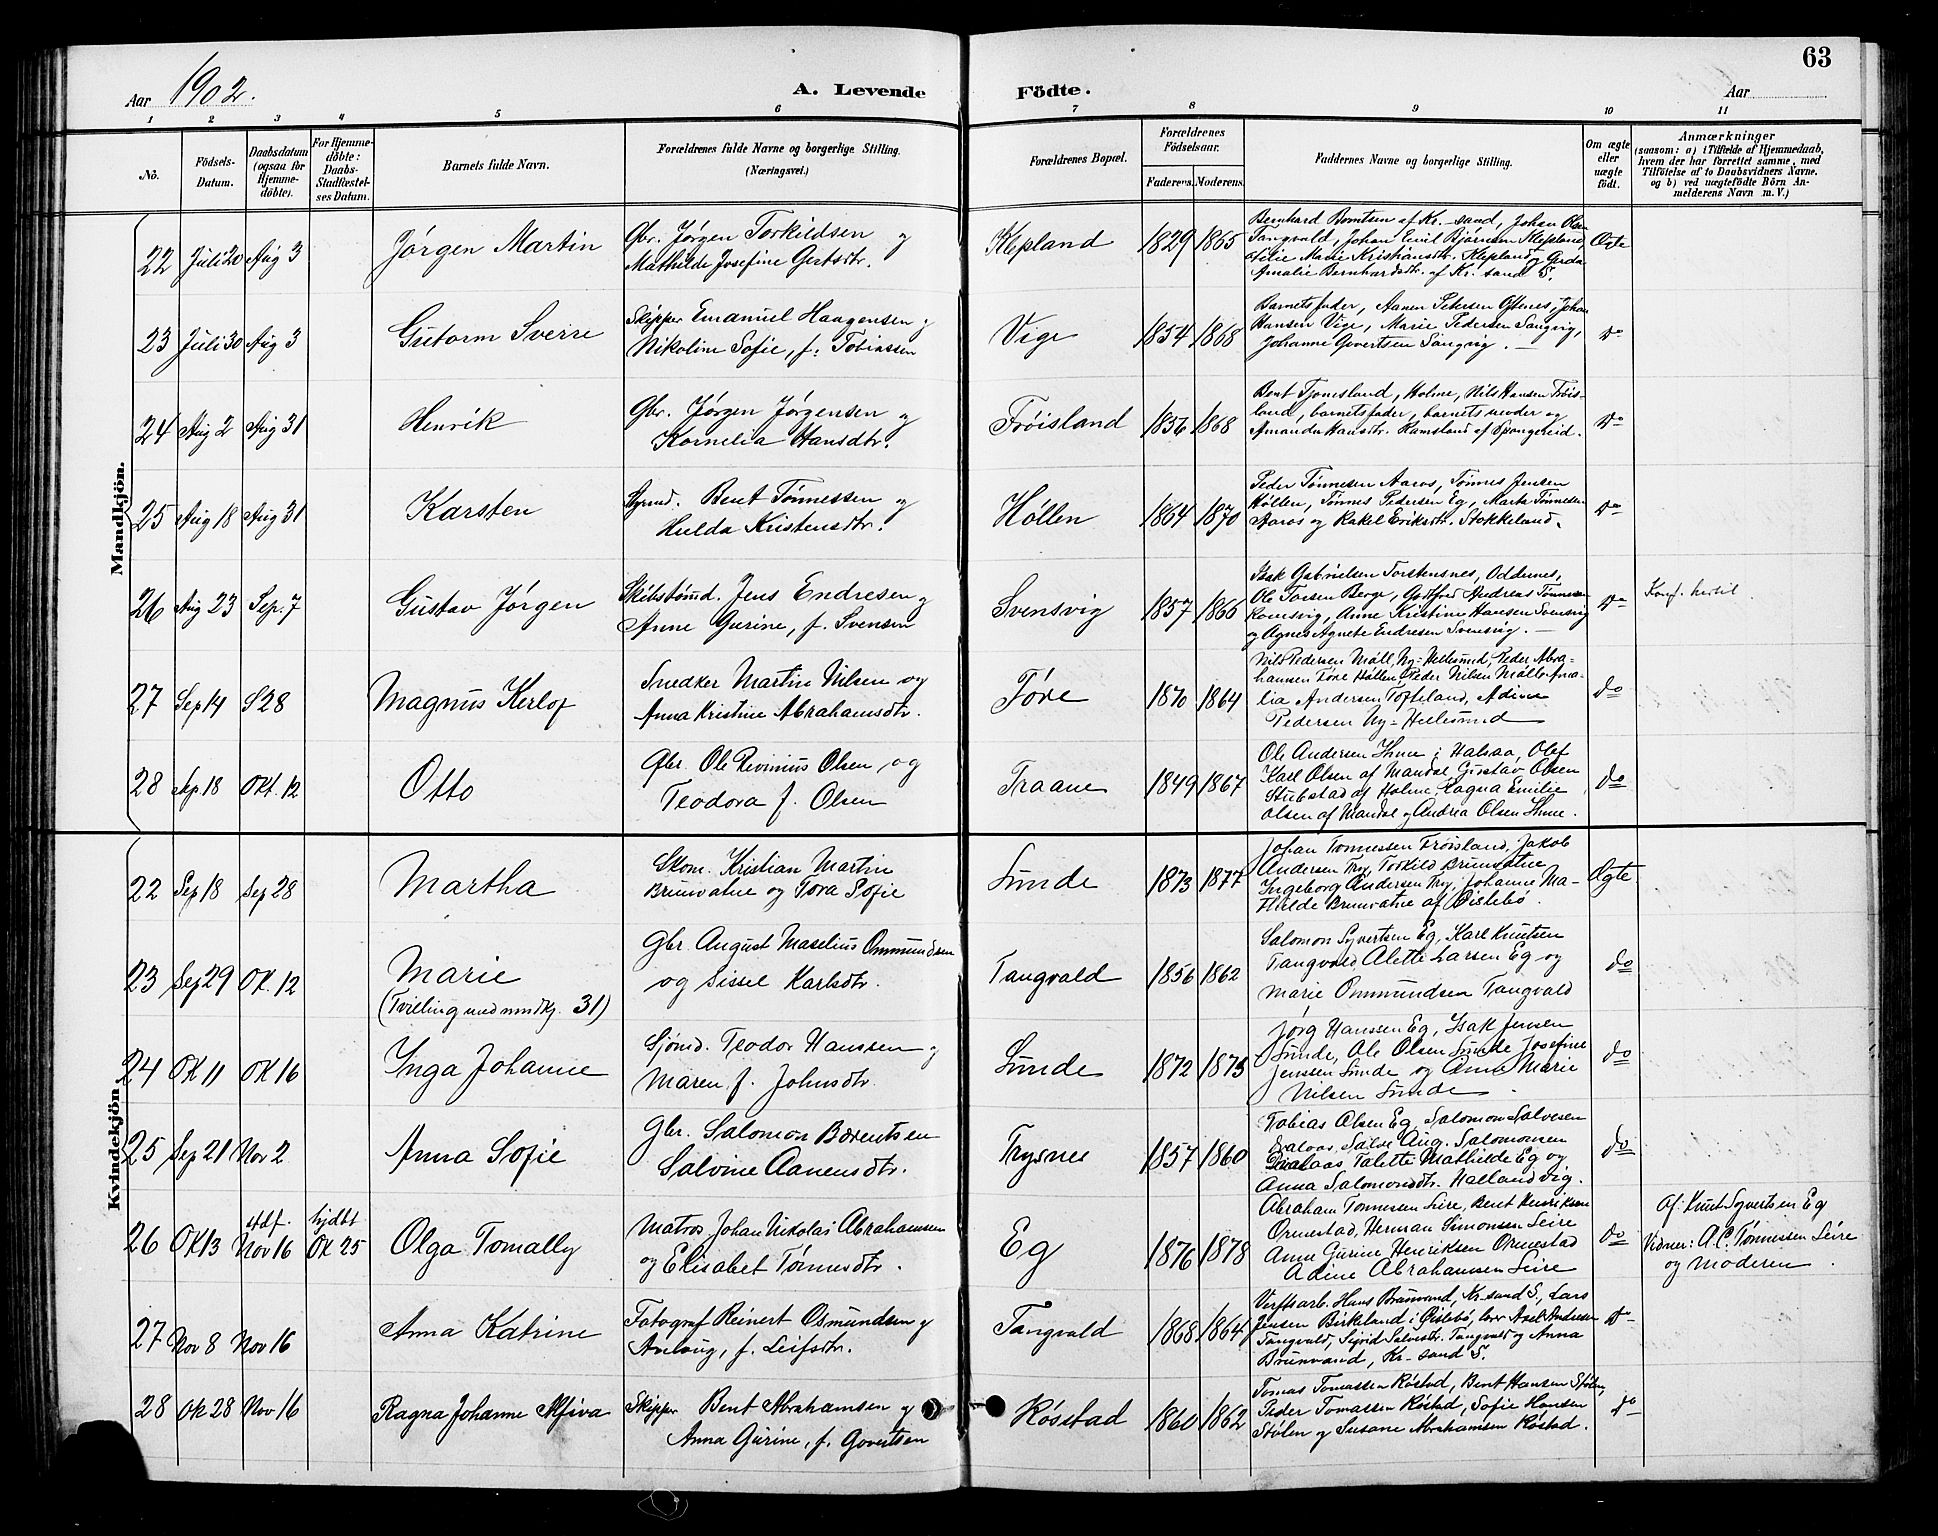 63
Aar 1902.
A. Levende Födte.
Aar
1 2 3 4 5 6 7 8 9 10 11
No.
Födsels-
Datum.
Daabsdatum
(ogsaa for
Hjemme-
döbte).
For Hjemme-
döbte:
Daabs-
Stadfæstel-
ses Datum.
Barnets fulde Navn.
Forældrenes fulde Navne og borgerlige Stilling.
(Næringsvei.)
Forældrenes Bopæl.
Forældrenes
Födselsaar.
Faderens. Moderens.
Faddernes Navne og borgerlige Stilling.
Om ægte
eller
uægte
födt.
Anmærkninger
(saasom: a) i Tilfælde af Hjemmedaab,
hvem der har forrettet samme, med
Tilföielse af to Daabsvidners Navne,
og b) ved uægtefödte Börn An-
melderens Navn m. V.)
Mandkjön.
22 Juli 20 Aug 3
Jørgen Martin
Gbr. Jørgen Torkildsen og
Mathilde Josefine Gertsdtr.
Klepland 1829 1865
Bernhard Bomtsen af Kr.-sand, Johan Olsen
Tangvald, Johan Emil Bjørnsen Klepland,
Marie Kristiansdtr. Klepland og Gerda
Amalie Bernhardsdtr. af Kr. sand S.
Ægte
23 Juli 30 Aug 3
Gutorm Sverre
Skipper Emanuel Haagensen og
Nikoline Sofie, f. Tobiassen
Vige 1854 1868
Barnets fader, Aanen Petersen Oftenes, Johan
Hansen Vige, Marie Pedersen Sangvig,
Johanne Govertsen Sangvig.
Do
24 Aug 2 Aug 31
Henrik
Gbr. Jørgen Jørgensen og
Kornelia Hansdtr.
Frøisland 1836 1868
Bent Tjomsland, Holme, Nils Hansen Frøis-
land, barnets fader, barnets moder og
Amanda Hansdtr. Ramsland af Spangereid.
Do
25 Aug 18 Aug 31
Karsten
Bent Tønnessen og
Hulda Kristensdtr.
Høllen 1864 1870
Peder Tønnesen Aaros, Tønnes Jensen
Høllen, Tønnes Pedersen Eg, Marta Tønnesen
Aaros og Rakel Eriksdtr. Stokkeland.
Do
26 Aug 23 Sep. 7
Gustav Jørgen
Skibstømd. Jens Endresen og
Anne Gurine, f. Svensen
Svensvig 1857 1866
Isak Gabrielsen Torstensnes, Oddernes,
Ole Berge, Godtfred Andreas Tønnesen
Romsvig, Anne Kristine Hansen Svensvig
og Agnes Agnete Endresen Svensvig.
Do
Konf. hertil.
27 Sep 14 S 28
Magnus Kerlof
Snedker Martin Nilsen og
Anna Kristine Abrahamsdtr.
Føre 1870 1864
Nils Pedersen Møll, Ny-Hellesund, Peder Abra-
hamsen Føre Høllen, Peder Nilsen Møll, Ama-
lia Andersen Tofteland, Adine
Pedersen Ny-Hellesund
do
28 Sep. 18 Okt. 12
Otto
Gbr. Ole Olsen og
Teodora f. Olsen
Traane 1849 1867
Ole Andersen Ihme i Halsaa, Olef
Karl Olsen af Mandal, Gustav Olsen
Stubstad af Holme, Ragna Emilie
Olsen af Mandal og Andrea Olsen Ihme.
do
Kvindekjön.
22 Sep 18 Sep 28
Martha
Skom. Kristian Martin
Brunvatne og Tora Sofie
Sunde 1873 1877
Johan Tønnessen Frøisland, Jakob
Andersen Try, Torkild Brunvatne
Ingeborg Andersen Try, Johanne Ma-
thilde Brunvatne af Øislebø.
Ægte
23 Sep 29 OK. 12
Marie
(Tvilling med mndkj. 31)
Gbr. August Maselius Ommundsen
og Sissel Karlsdtr.
Tangvald 1856 1862
Salomon Syvertsen Eg, Karl Knutsen
Tangvald, Alette Larsen Eg og
Marie Ommundsen Tangvald
do
24 OK 11 OK 16
Inga Johanne
Sjømd. Teodor Hanssen og
Maren f. Johnsdtr.
Sunde 1872 1873
Jørg Hanssen Eg, Isak Jensen
Sunde, Ole Olsen Sunde, Josefine
Jenssen Sunde og Anne Marie
Nilsen Sunde
do
25 Sep 21 Nov 2
Anna Sofie
Gbr. Salomon Bærentsen
Salvine Aanensdtr.
Trysnes 1857 1860
Tobias Olsen Eg, Salomon Salvesen
Aug. Salomonsen
Talette Mathilde Eg og
Anna Salomonsdtr. Hallandvig.
do
26 OK 13 4df. Nov 16 hjdbt OK 25
Olga Tomally
Matros Johan Nikolai Abrahamsen
og Elisabet Tønnesdtr.
Eg 1876 1878
Abraham Tønnesen Leire, Bent Henriksen
Ormestad, Herman Simonsen Leire
Anne Gurine Henriksen Ormestad
Adine Abrahamsen Leire
do
Af Knut Syvertsen Eg
Vidner: A. C. Tønnessen Leire
og Moderen.
27 Nov 8 Nov 16
Anna Katrine
Fotograf Reinert Osmundsen og
f. Leifsdtr.
Tangvald 1868 1864
Verftsarb. Hans Brunvand, Kr.sand S., Lars
Jensen Birkeland i Øislebø, Axel Andersen
Tangvald, Sigrid Salvesdtr. Tangvald og Anna
Brunvand, Kr-sand S.
Do
28 Ok 28 Nov 16
Ragna Johanne Alfiva
Skipper Bent Abrahamsen og
Anna Gurine, f. Govertsen
Røsstad 1860 1862
Tomas Tomassen Røstad, Bent Hansen Stølen,
Peder Tomassen Røstad, Sofie Hansen
Stølen og Susane Abrahamsen Røstad.
do